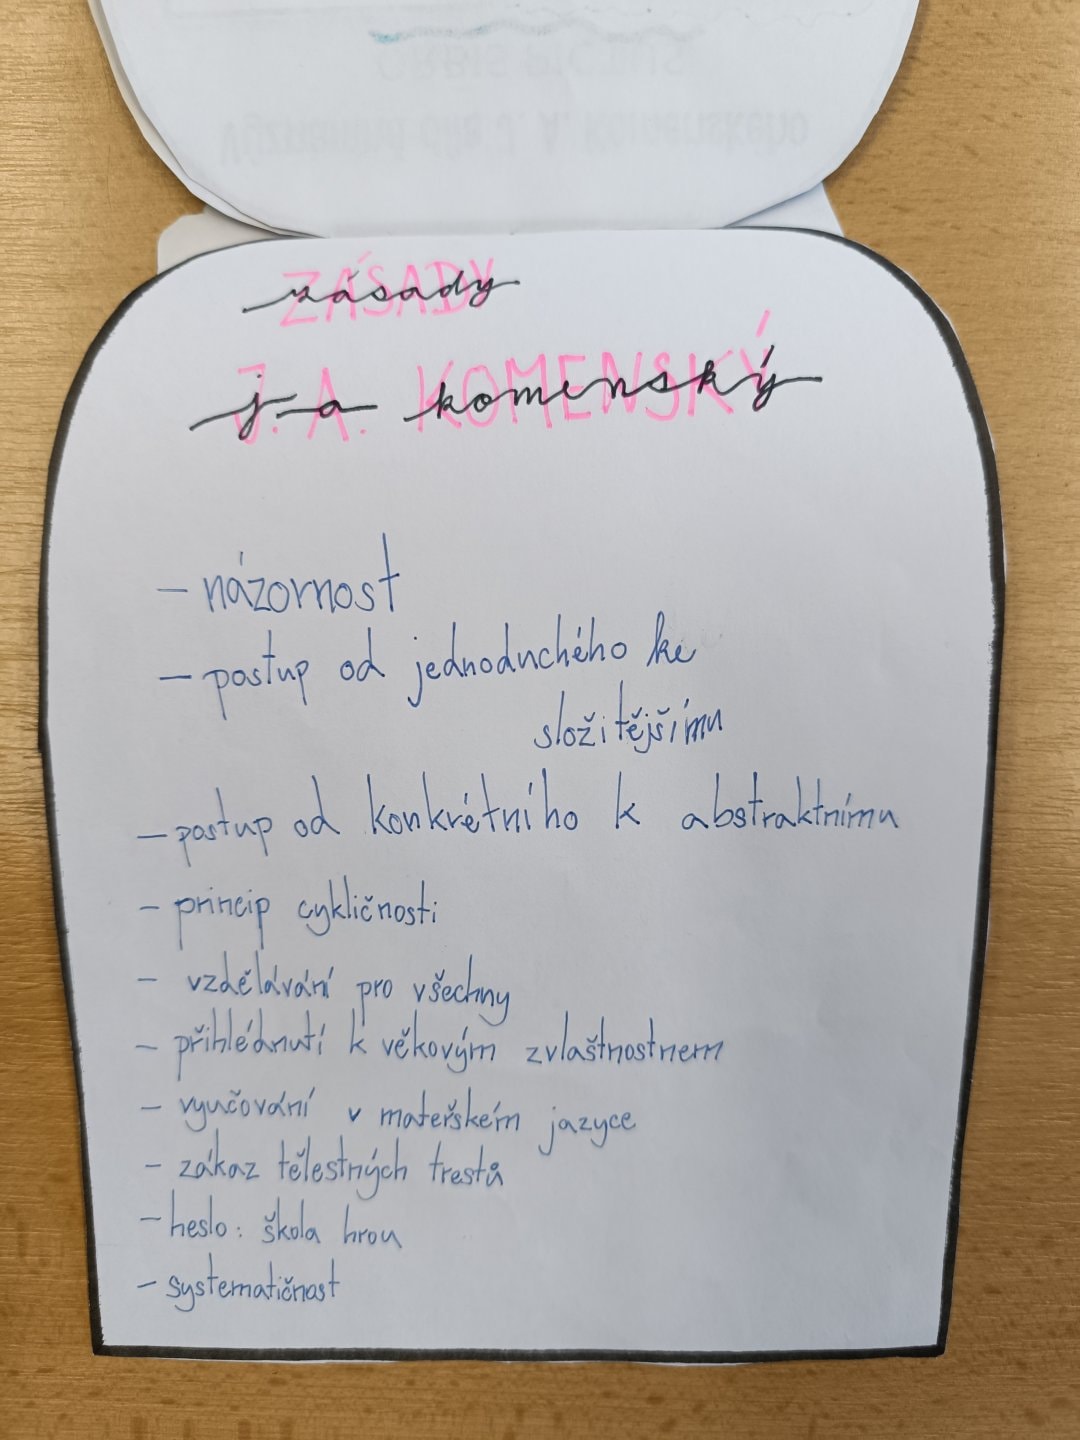 ZÁSADY
zásady
J. A. KOMENSKÝ
j. a komenský
- názornost
- postup od jednoduchého ke
složitějšímu
- postup od konkrétního k abstraktnímu
- princip cykličnosti
- vzdělávání pro všechny
- přihlédnutí k věkovým zvlaštnostnem
- vyučování v mateřském jazyce
- zákaz tělestných trestů
- heslo: škola hrou
- systematičnost